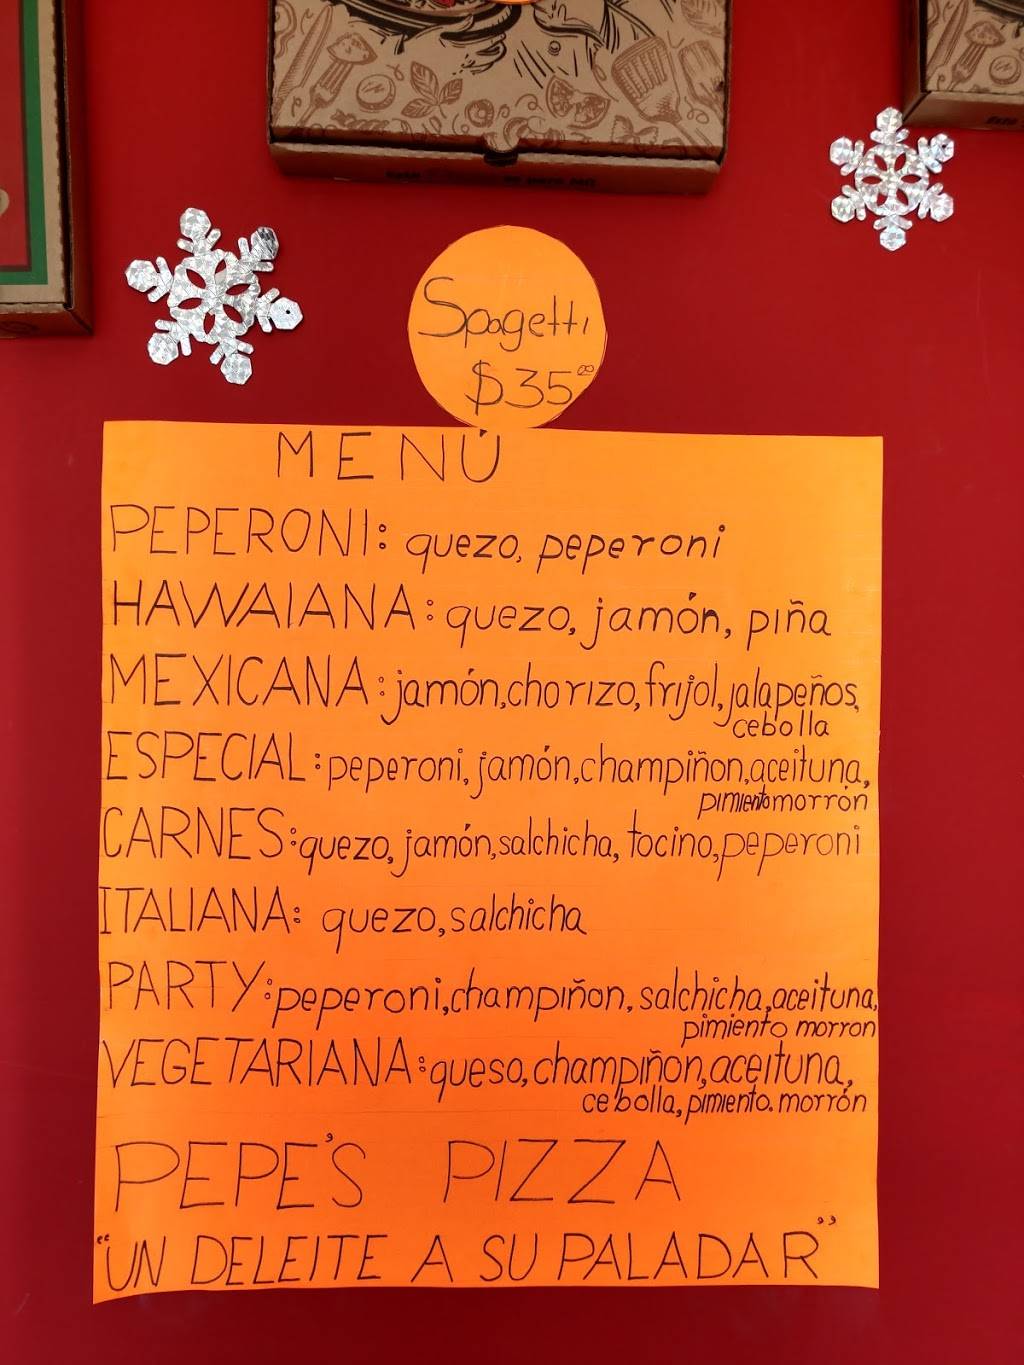 Spagetti
$35.00
MENÚ
PEPERONI: quezo, peperoni
HAWAIANA: quezo, jamón, piña
MEXICANA: jamón, chorizo, frijol, jalapeños,
cebolla
ESPECIAL: peperoni, jamón, champiñon, aceituna,
pimiento morrón
CARNES: quezo, jamón, salchicha, tocino, peperoni
ITALIANA: quezo, salchicha
PARTY: peperoni, champiñon, salchicha, aceituna,
pimiento morron
VEGETARIANA: queso, champiñon, aceituna,
cebolla, pimiento. morrón
PEPE'S PIZZA
"UN DELEITE A SU PALADAR"